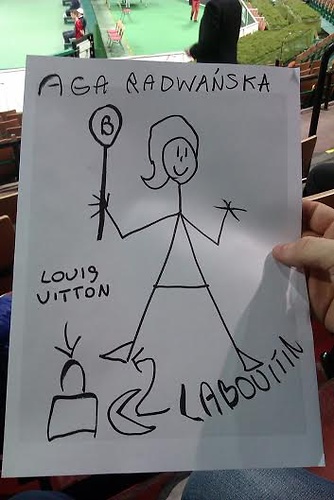 AGA RADWAŃSKA
B
LOUIS
VITTON
LABOUTIN